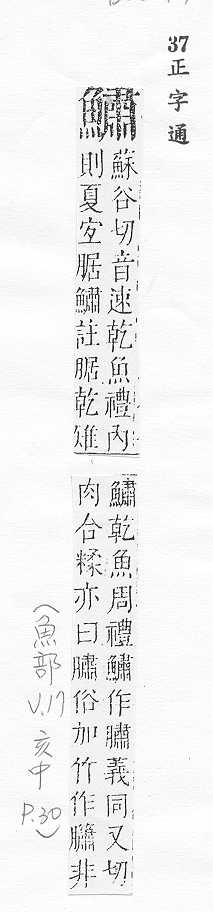 37正字通
鱐
蘇谷切音速乾魚禮內
則夏宐腒鱐註腒乾雉
鱐乾魚周禮鱐作䐹義同又切
肉合糅亦曰䐹俗加竹作非
(魚部
V.17
亥中
P.30)